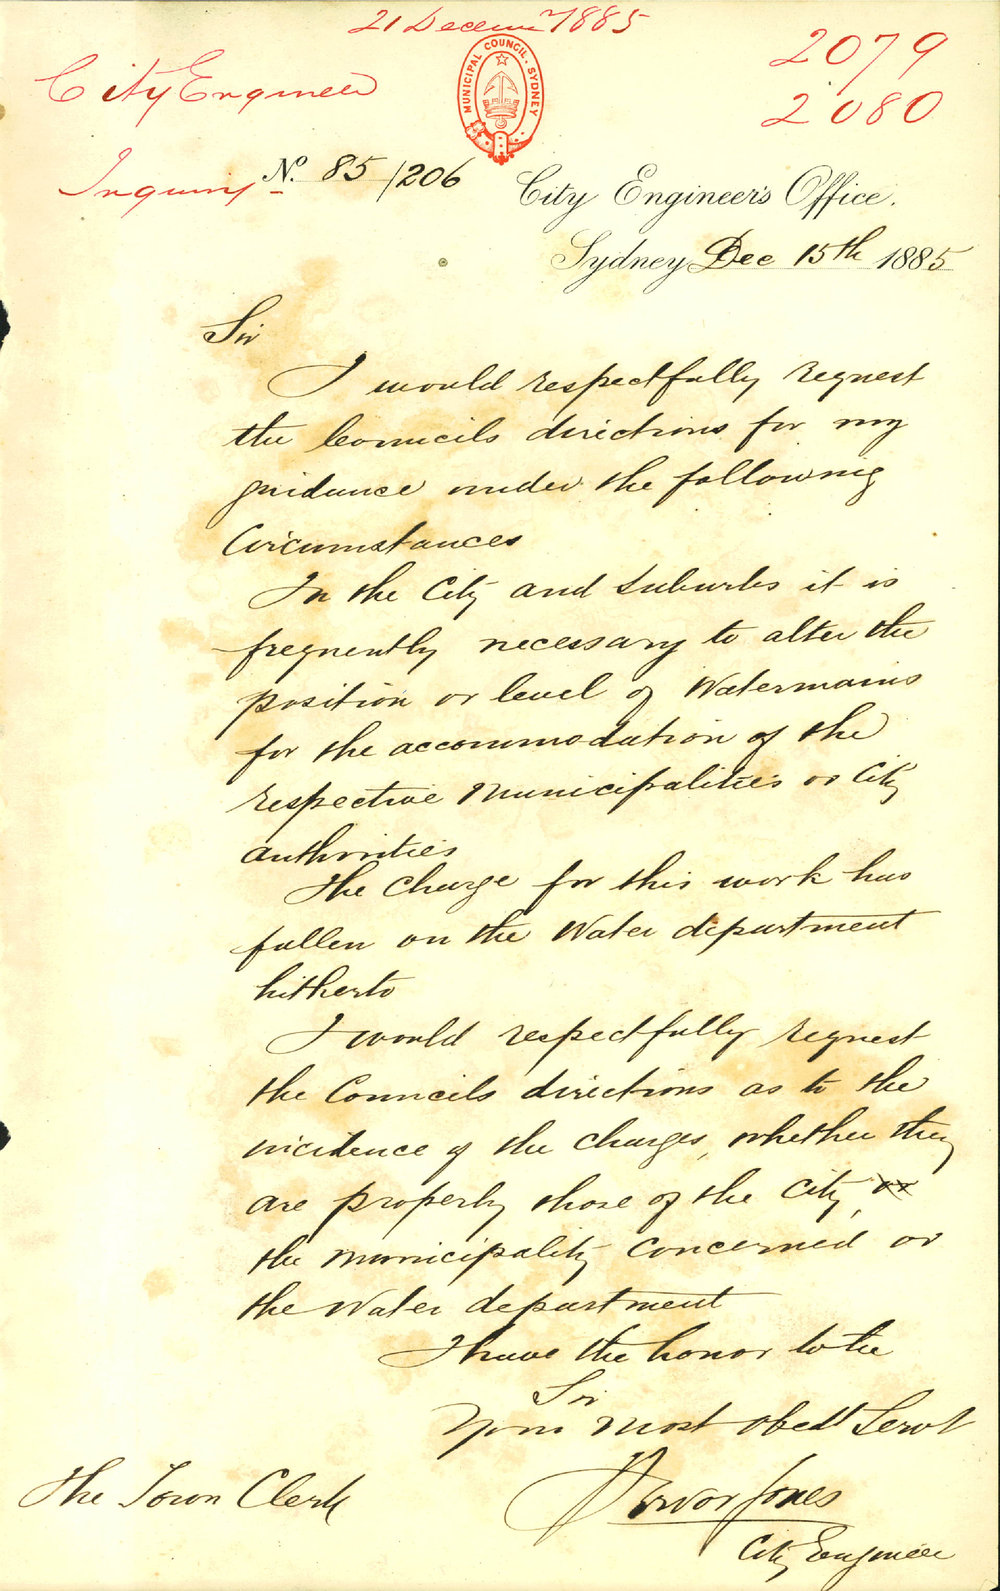 21 Decem 1885
City Engineer
2079
2080
MUNICIPAL COUNCIL. SYDNEY
Inquiry
No. 85/206
City Engineer's Office.
Sydney Dec 15th 1885
Sir
I would respectfully request
the Councils directions for my
guidance under the following
Circumstances
In the City and suburbs it is
frequently necessary to alter the
position or level of Watermains
for the accommodation of the
respective Municipalities or City
authorities
The charge for this work has
fallen on the Water department
hitherto
I would respectfully request
the Councils directions as to the
incidence of the charges, whether they
are properly those of the City, or
the Municipality concerned or
the Water department
I have the honor to be
Sir
Your most obedt Servt
Trevor Jones
City Engineer
The Town Clerk